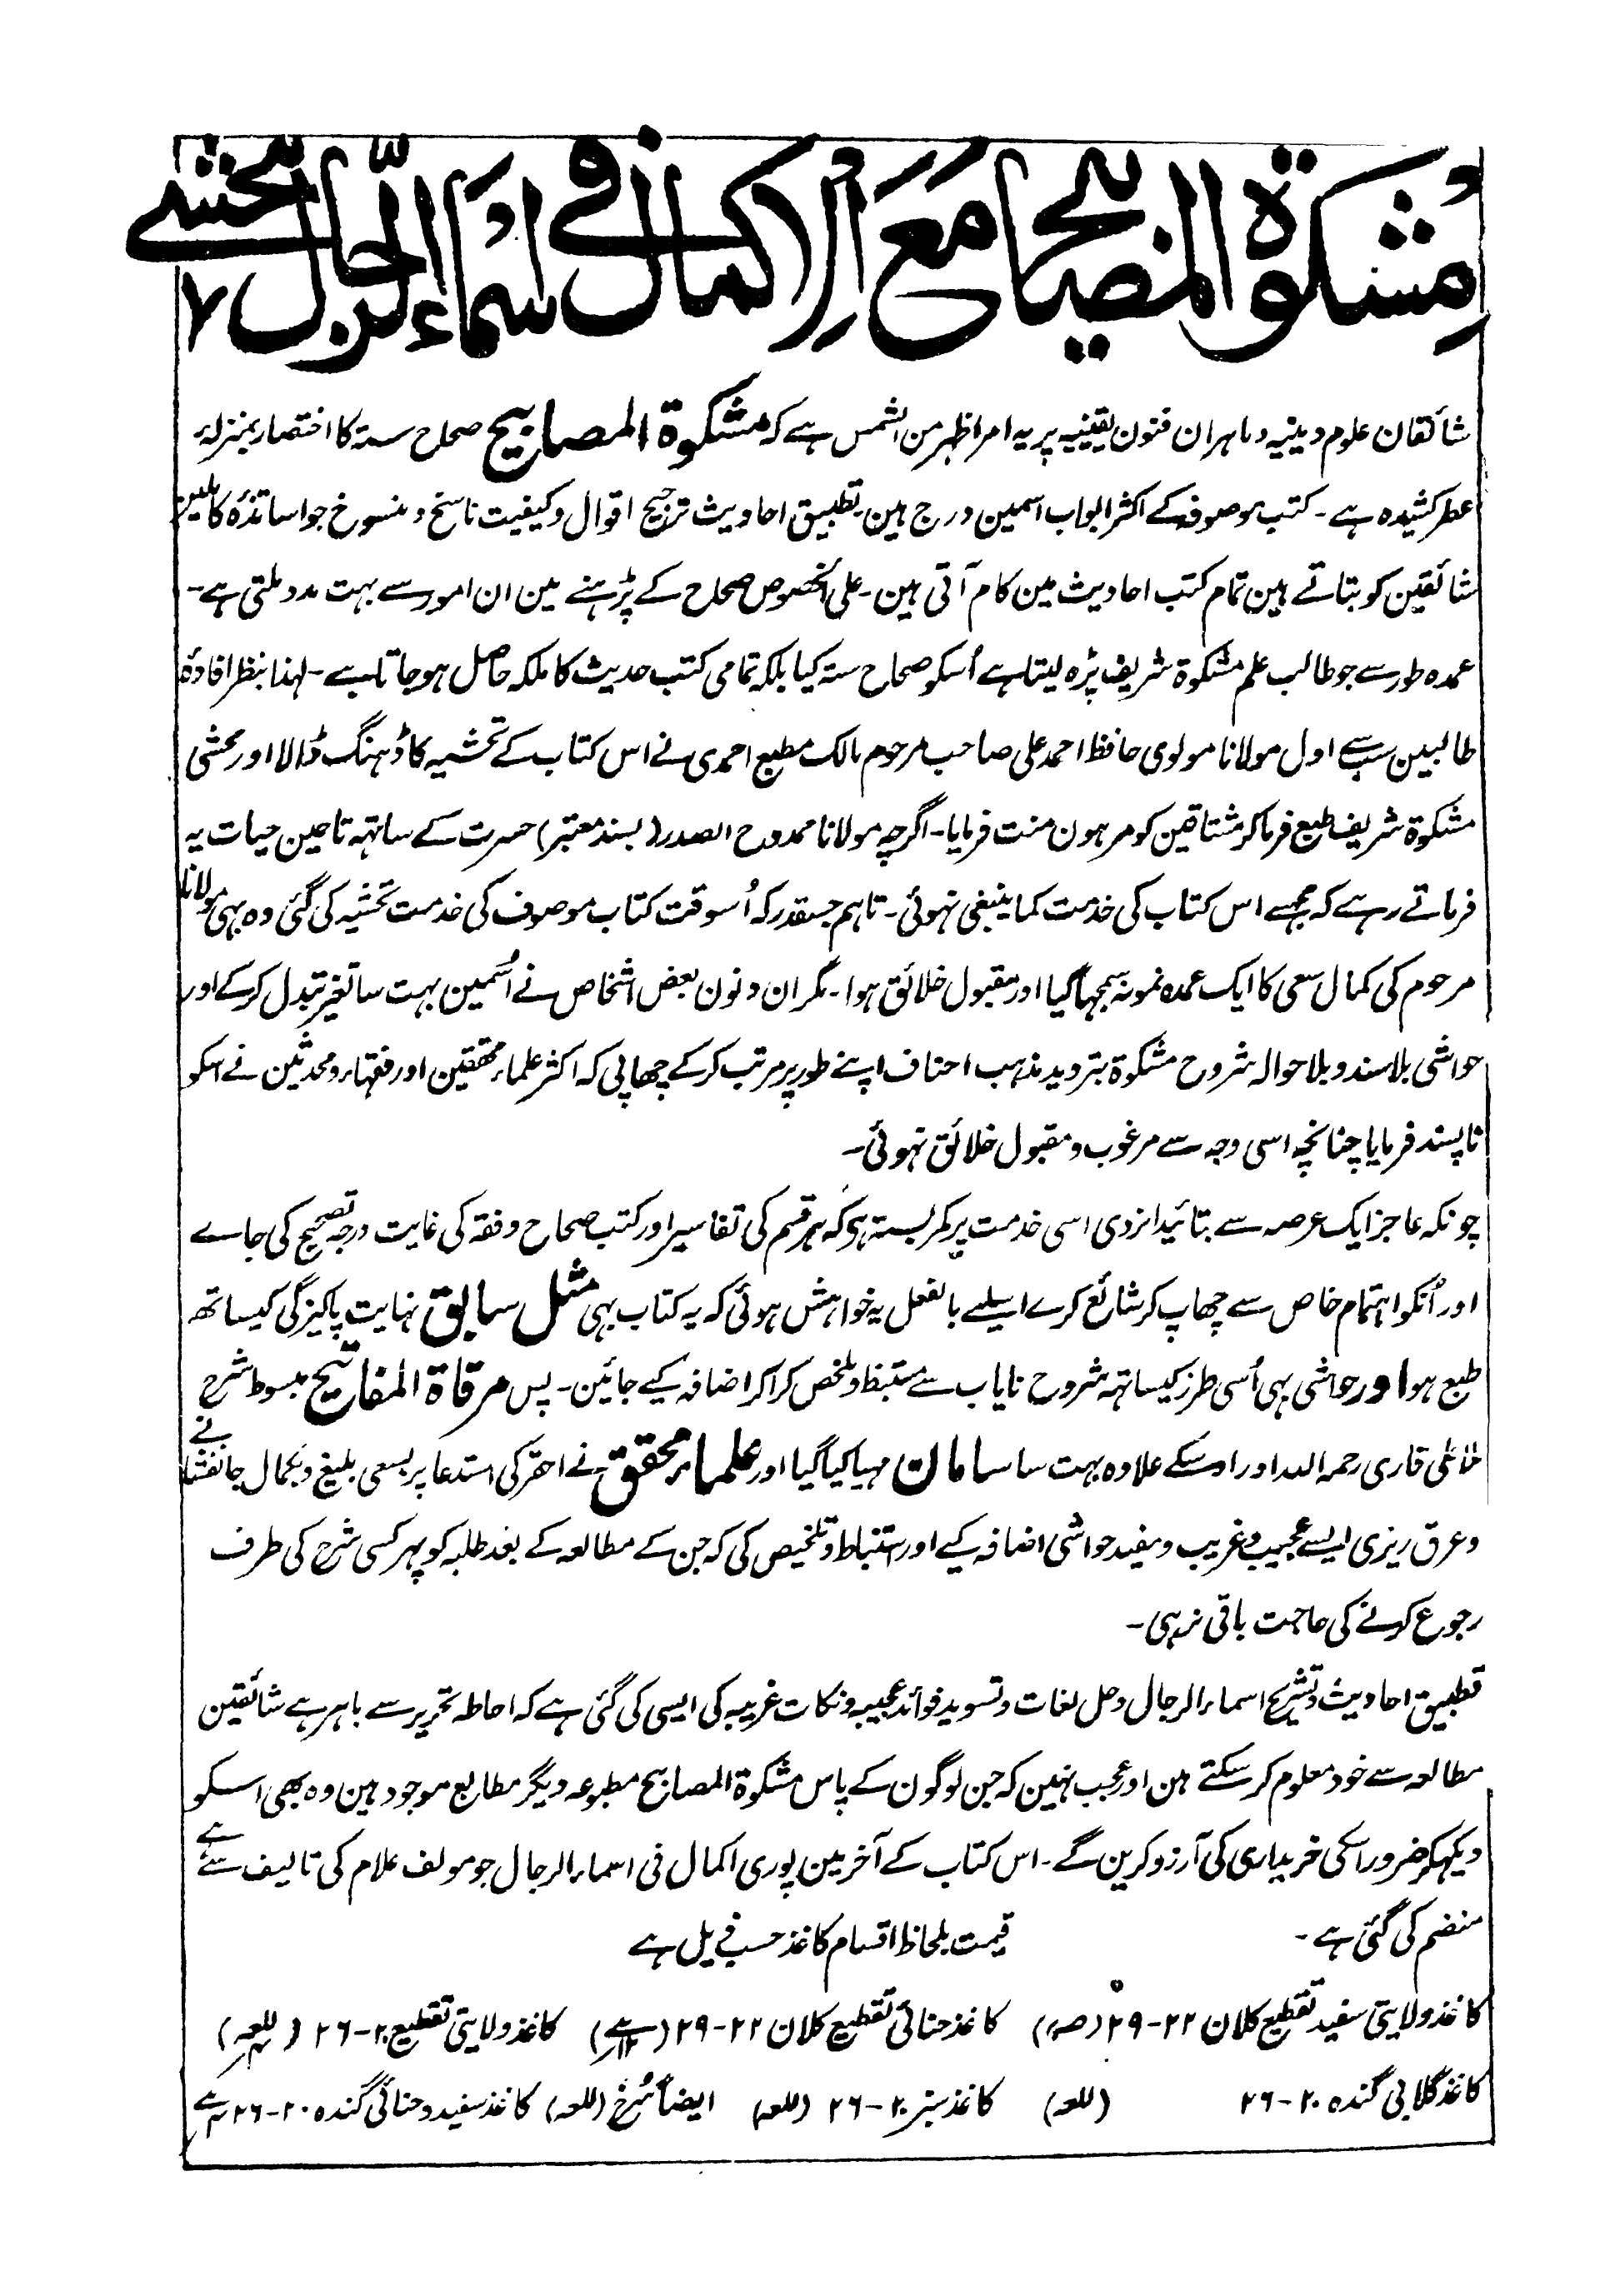 مشكوة المصابيح مع الاكمال فى اسماء الرجال محشے
شائقان علوم دینیہ و ماہران فنون یقینیہ پر یہ امر اظہر من الشمس ہے کہ مشکوة المصابیح صحاح ستہ کا اختصار بمنزلہٴ
عطر کشیدہ ہے ۔ کتب موصوفہ کے اکثر ابواب اسمین درج ہین تطبیق احادیث ترجیح اقوال و کیفیت ناسخ و منسوخ جو اساتذہٴ کاملین
شائقین کو بتاتے ہین تمام کتب احادیث مین کام آتی ہین ۔ علی الخصوص صحاح کے پڑہنے مین ان امور سے بہت مدد ملتی ہے ۔
عمدہ طور سے جو طالب علم مشکوة شریف پڑہ لیتا ہے اُسکو صحاح ستہ کیا بلکہ تمامی کتب حدیث کا ملکہ حاصل ہو جاتا ہے ۔ لہذا بنظر افادہٴ
طالبین سب سے اول مولانا مولوی حافظ احمد علی صاحب مرحوم مالک مطبع احمدی نے اس کتاب کے تحشیہ کا ڈہنگ ڈالا اور محشی
مشکوة شریف طبع فرما کر مشتاقین کو مرہون منت فرمایا ۔ اگرچہ مولانا ممدوح الصدر (بسند معتبر) حسرت کے ساتہہ تا حین حیات یہ
فرماتے رہے کہ مجہسے اس کتاب کی خدمت کما ینبغی نہوئی ۔ تاہم جسقدر کہ اُسوقت کتاب موصوف کی خدمت تحشیہ کی گئی وہ بہی مولانا
مرحوم کی کمال سعی کا ایک عمدہ نمونہ سمجہا گیا اور مقبول خلائق ہوا ۔ مگر ان دنون بعض اشخاص نے اُسمین بہت سا تغیر تبدل کرکے اور
حواشی بلا سند و بلا حوالہ شروح مشکوة بتردید مذہب احناف اپنے طور پر مرتب کرکے چھاپی کہ اکثر علماء محققین اور فقہاء و محدثین نے اسکو
ناپسند فرمایا چنانچہ اسی وجہ سے مرغوب و مقبول خلائق نہوئی ۔
چونکہ عاجز ایک عرصہ سے بتائید ایزدی اسی خدمت پر کمر بستہ ہو کہ ہر قسم کی تفاسیر اور کتب صحاح و فقہ کی غایت درجہ تصحیح کی جاے
اور اُنکو اہتمام خاص سے چھاپ کر شائع کرے اسلیے بالفعل یہ خواہش ہوئی کہ یہ کتاب بہی مثل سابق نہایت پاکیزگی کیساتھ
طبع ہو اور حواشی بہی اُسی طرز کیساتہہ شروح نایاب سے مستنبط و ملخص کرا کر اضافہ کیے جائین ۔ پس مرقاة المفاتیح مبسوط شرح
ملا علی قاری رحمہ اللہ اور اوسکے علاوہ بہت سا سامان مہیا کیا گیا اور علماء محقق نے احقر کی استدعا پر بسعی بلیغ و بکمال جانفشانی
و عرق ریزی ایسے عجیب و غریب و مفید حواشی اضافہ کیے اور استنباط و تلخیص کی کہ جن کے مطالعہ کے بعد طلبہ کو پہر کسی شرح کی طرف
رجوع کرنے کی حاجت باقی نرہی ۔
تطبیق احادیث و تشریح اسماء الرجال و حل لغات و تسوید فوائد عجیبہ و نکات غریبہ کی ایسی کی گئی ہے کہ احاطہ تحریر سے باہر ہے شائقین
مطالعہ سے خود معلوم کر سکتے ہین اور عجب نہین کہ جن لوگون کے پاس مشکوة المصابیح مطبوعہ دیگر مطابع موجود ہین وہ بھی اسکو
دیکہکر ضرور اسکی خریداری کی آرزو کرین گے ۔ اس کتاب کے آخر مین پوری اکمال فی اسماء الرجال جو مولف علام کی تالیف سے ہے
منضم کی گئی ہے ۔ قیمت بلحاظ اقسام کاغذ حسب ذیل ہے
کاغذ ولایتی سفید تقطیع کلان ۲۲-۲۹ کاغذ حنائی تقطیع کلان ۲۲-۲۹ کاغذ ولایتی تقطیع ۲۰-۲۶
کاغذ گلابی گندہ ۲۰-۲۶ (للعہ) کاغذ سبز ۲۰-۲۶ (للعہ) ایضاً سُرخ (للعہ) کاغذ سفید و حنائی گندہ ۲۰-۲۶